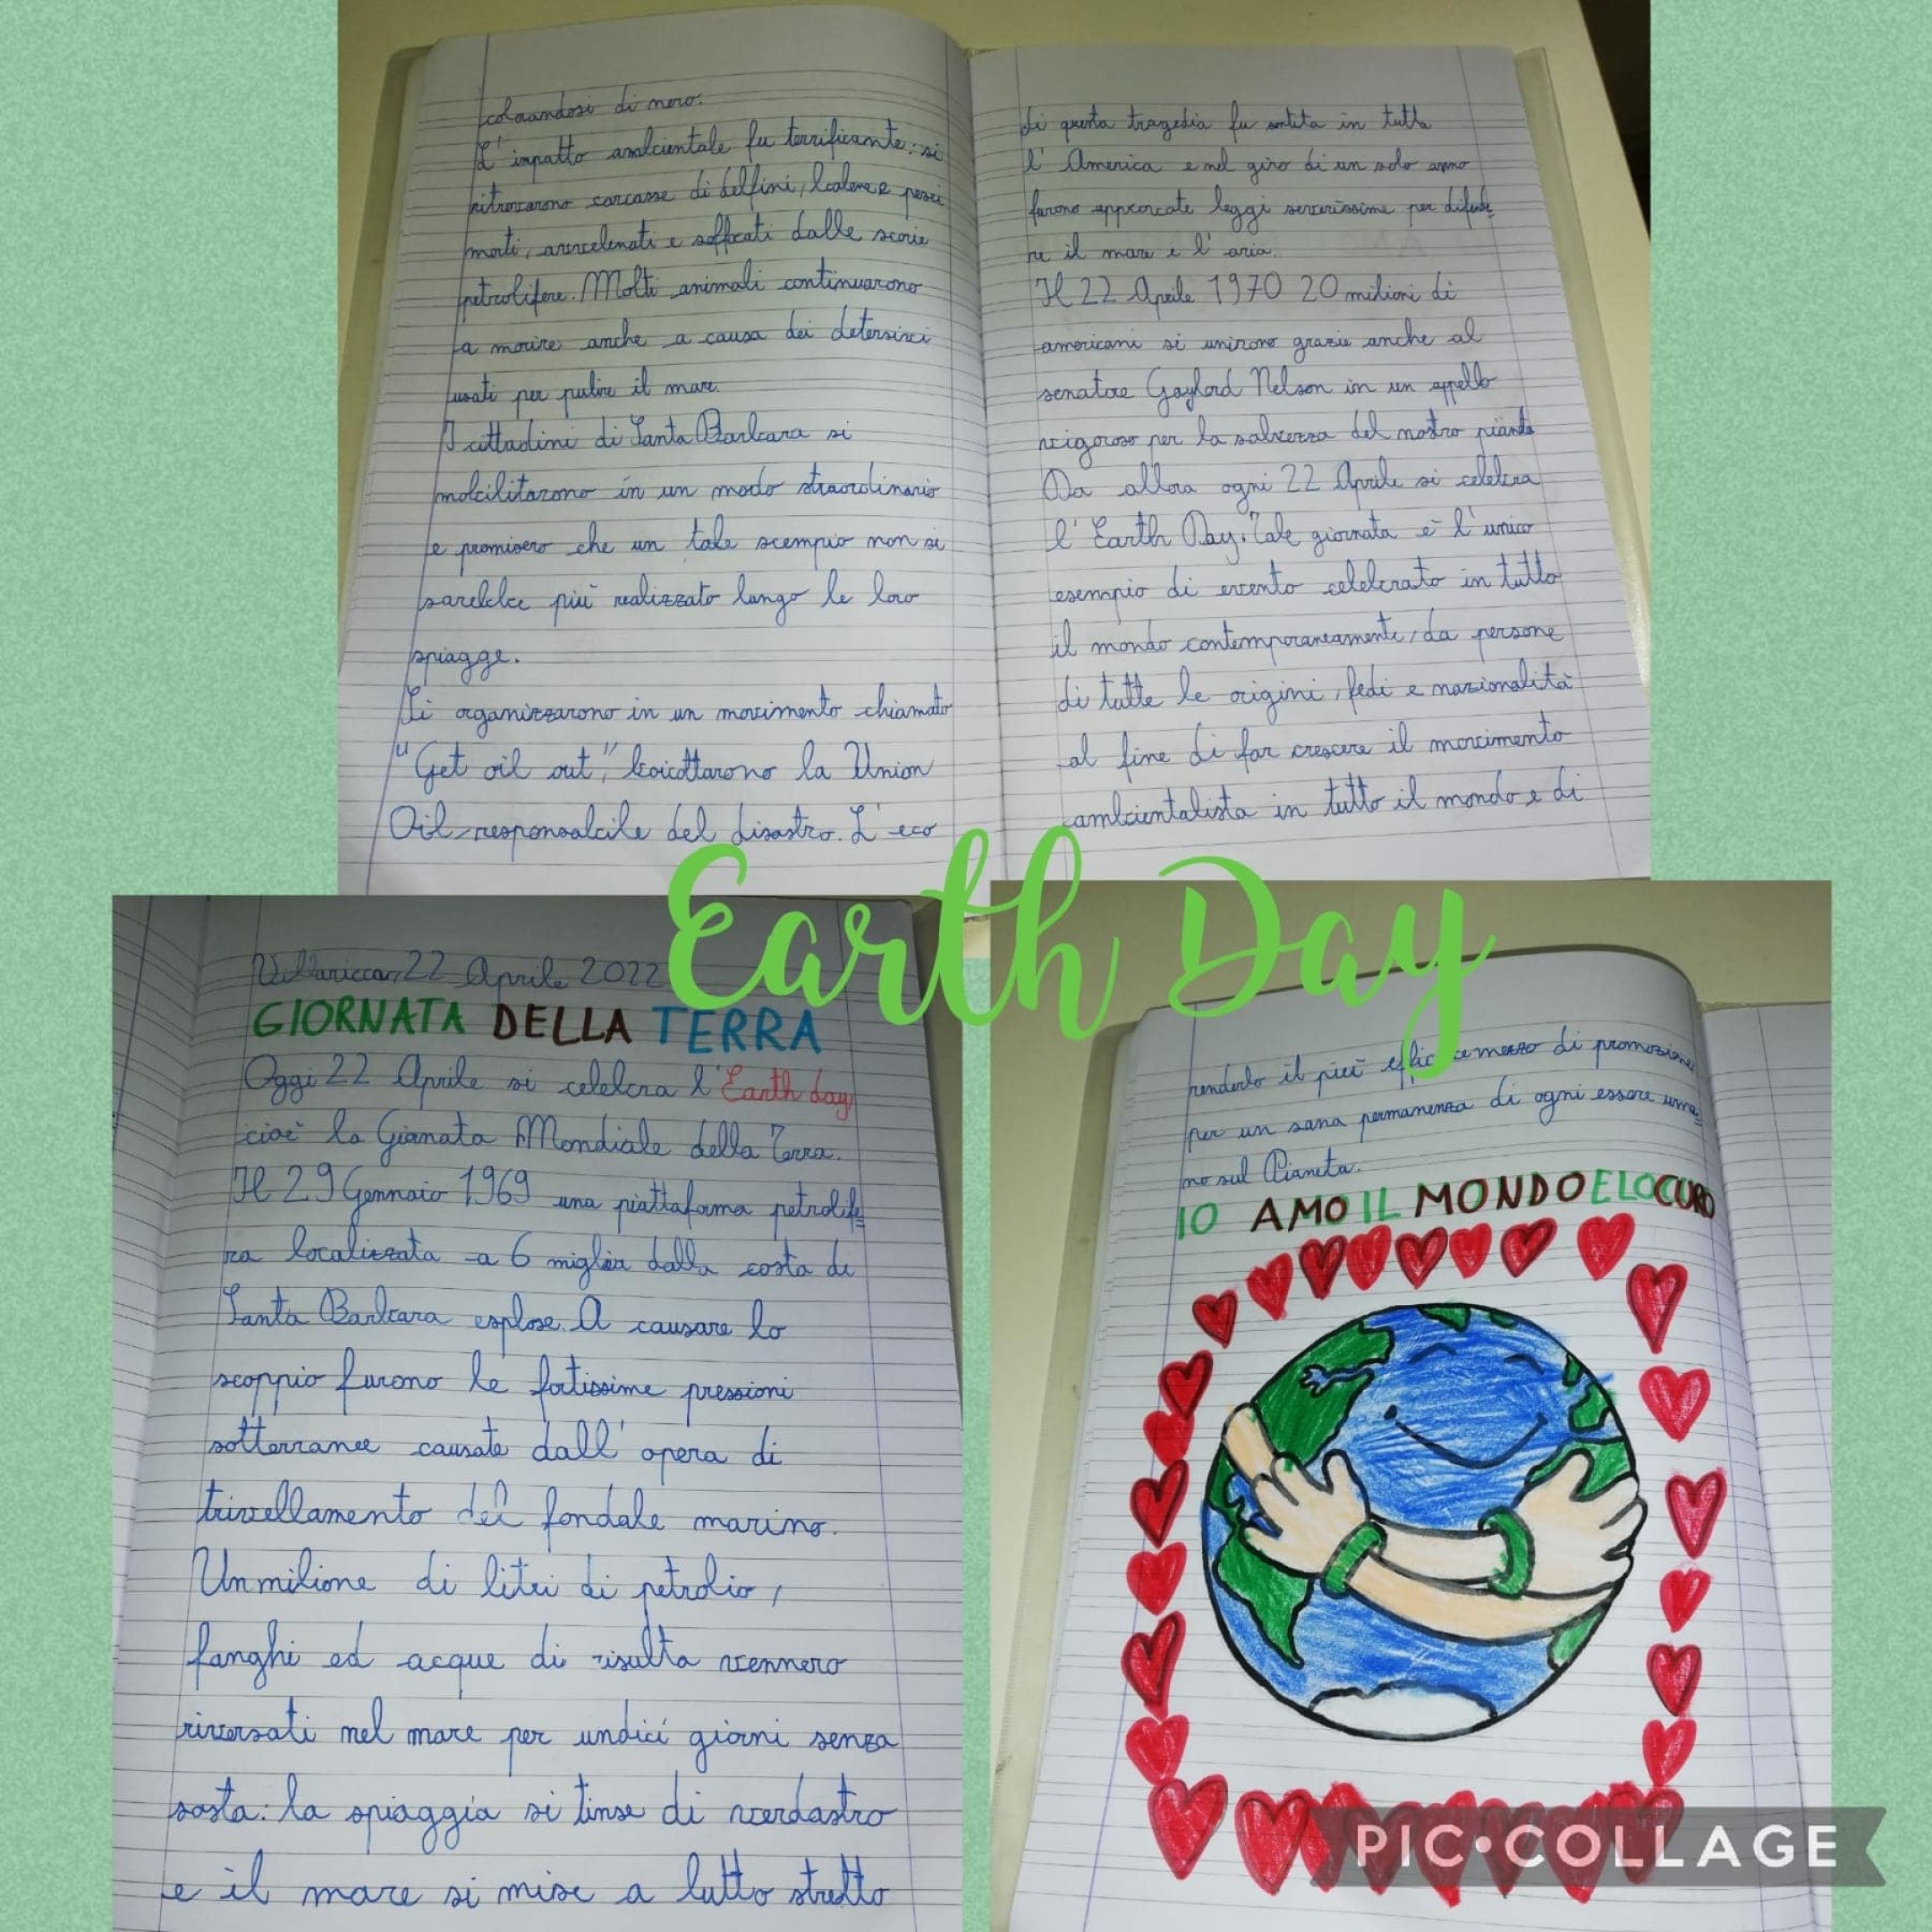 colorandosi di nero.
L'impatto ambientale fu terrificante: si
ritrovarono carcasse di delfini, balene e pesci
morti, avvelenati e soffocati dalle scorie
petrolifere. Molti animali continuarono
a morire anche a causa dei detersivi
usati per pulire il mare.
I cittadini di Santa Barbara si
mobilitarono in un modo straordinario
e promisero che un tale scempio non si
sarebbe più realizzato lungo le loro
spiagge.
Si organizzarono in un movimento chiamato
"Get oil out", boicottarono la Union
Oil responsabile del disastro. L'eco
di questa tragedia fu sentita in tutta
l'America e nel giro di un solo anno
furono approvate leggi severissime per difende
re il mare e l'aria.
Il 22 Aprile 1970 20 milioni di
americani si unirono grazie anche al
senatore Gaylord Nelson in un appello
vigoroso per la salvezza del nostro pianeta
Da allora ogni 22 Aprile si celebra
l'Earth Day. Tale giornata è l'unico
esempio di evento celebrato in tutto
il mondo contemporaneamente, da persone
di tutte le origini, fedi e nazionalità
al fine di far crescere il movimento
ambientalista in tutto il mondo e di
Earth Day
Villaricca, 22 Aprile 2022
GIORNATA DELLA TERRA
Oggi 22 Aprile si celebra l'Earth day,
cioè la Giornata Mondiale della Terra.
Il 29 Gennaio 1969 una piattaforma petrolife
ra localizzata a 6 miglia dalla costa di
Santa Barbara esplose. A causare lo
scoppio furono le fortissime pressioni
sotterranee causate dall'opera di
trivellamento del fondale marino.
Un milione di litri di petrolio,
fanghi ed acque di risulta vennero
riversati nel mare per undici giorni senza
sosta: la spiaggia si tinse di verdastro
e il mare si mise a lutto stretto
renderlo il più efficace mezzo di promozione
per un sana permanenza di ogni essere uma
no sul Pianeta.
IO AMO IL MONDO E LO CURO
PIC•COLLAGE